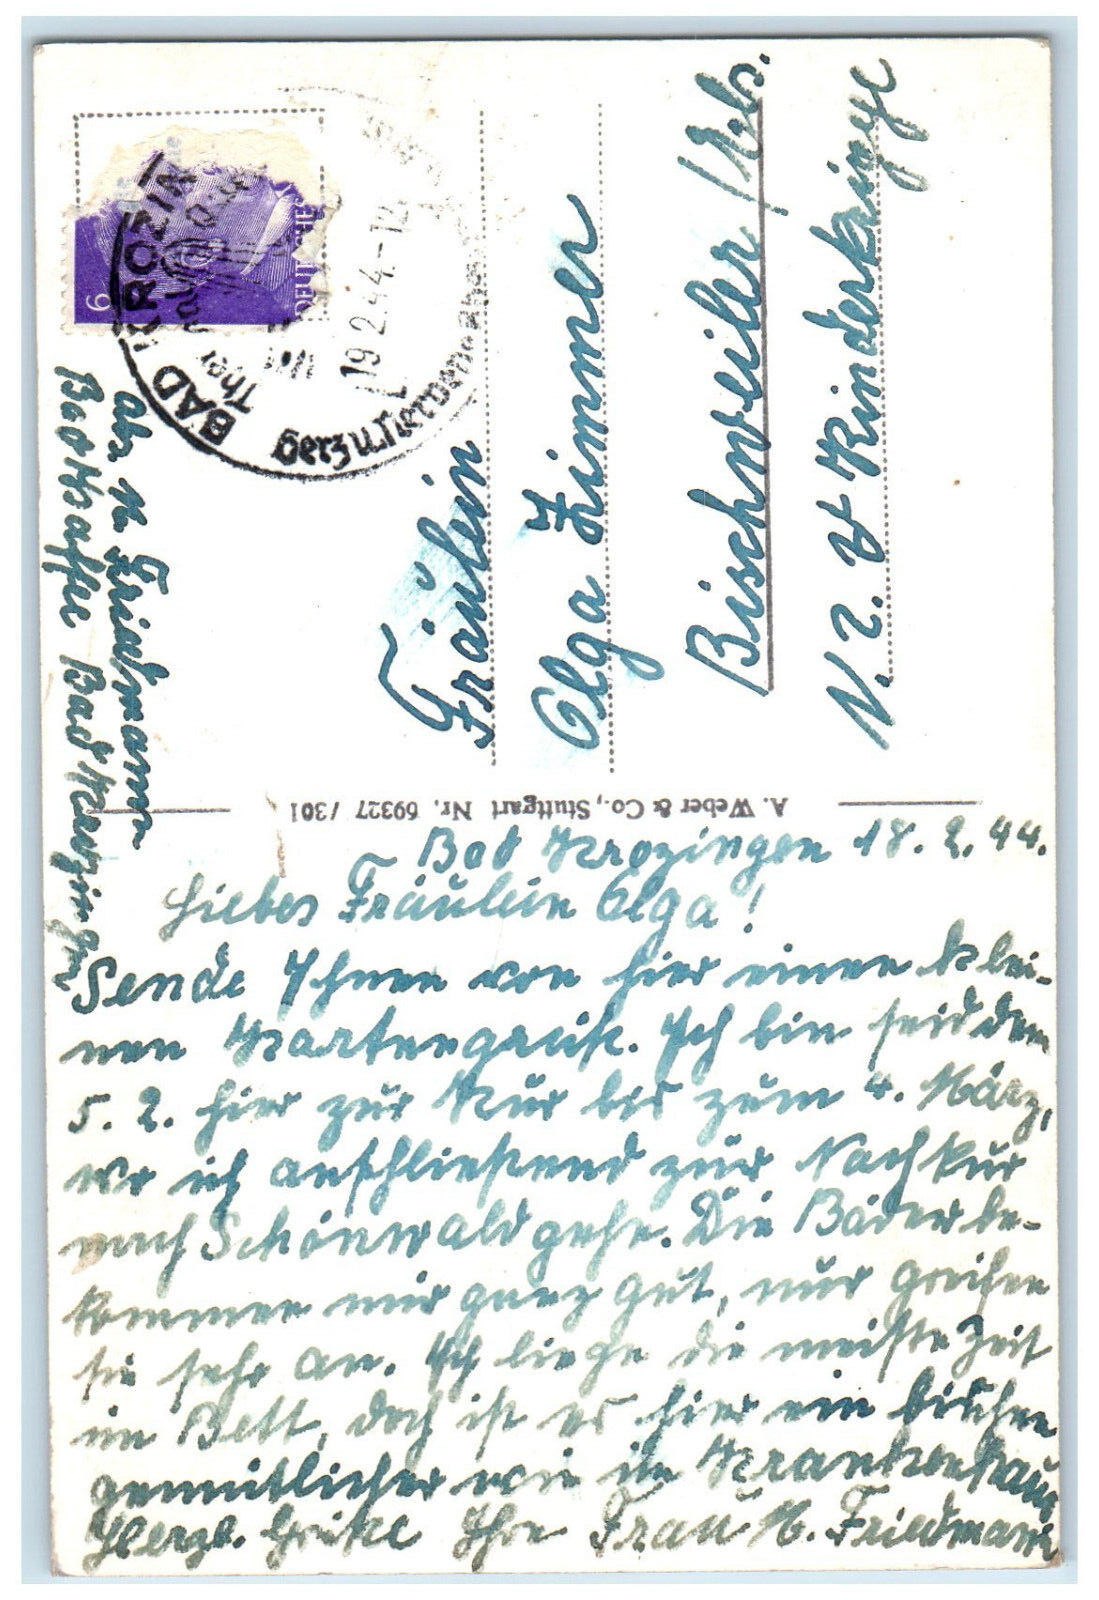 Bad Krozingen 18.2.44.
Liebes Fräulein Olga!
Sende Ihnen von hier einen klei-
nen Kartengruß. Ich bin seid dem
5.2. hier zur Kur bis zum 4. März,
wo ich anschließend zur Nachkur
nach Schönwald gehe. Die Bäder be-
kommen mir ganz gut, nur greifen
sie sehr an. Ich liege die meiste Zeit
im Bett, doch ist es hier ein bischen
gemütlicher wie im Krankenhaus
Herzl. Grüße Ihre Frau M. Friedmann
Fräulein
Olga Zimmer
Bischweiler / Els.
N.S.V Kinderkrippe
Abs. M. Friedmann
Bad Krozingen
A. Weber & Co., Stuttgart Nr. 69327 /301
BAD KROZIN
Herz u. Nerven
19.2.44.-12
DEUTSCHES
6